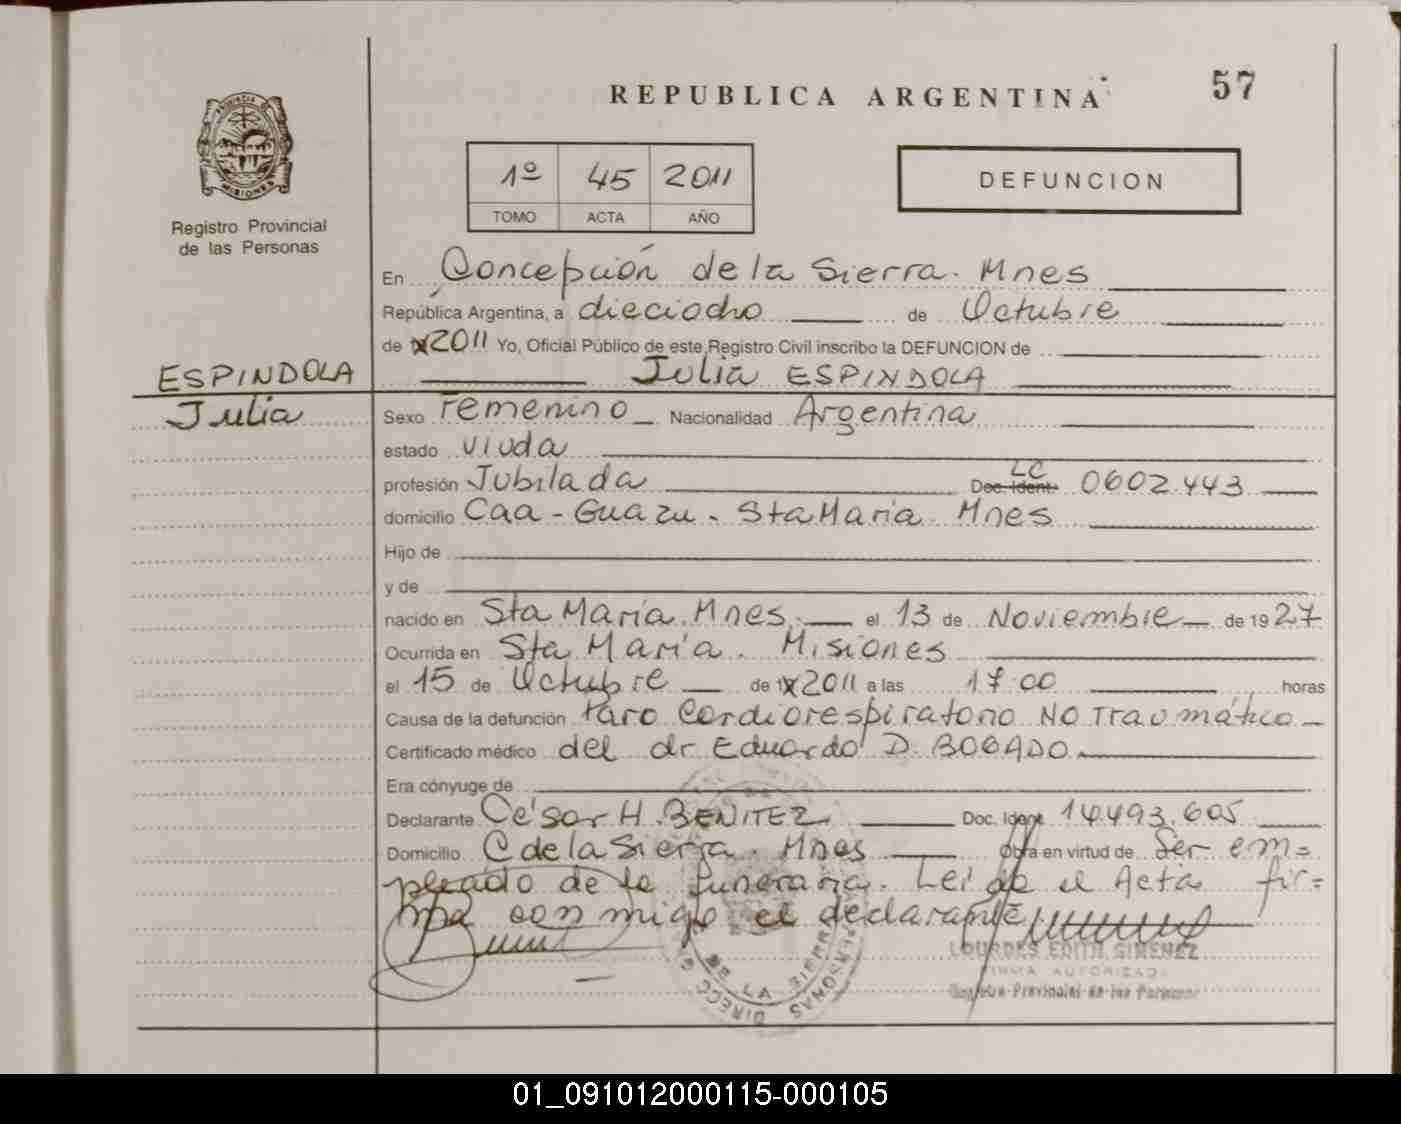 REPUBLICA ARGENTINA
57
PROVINCIA DE
MISIONES
Registro Provincial
de las Personas
1º 45 2011
TOMO ACTA AÑO
DEFUNCION
En Concepción de la Sierra. Mnes
República Argentina, a dieciocho de Octubre
de 2011 Yo, Oficial Público de este Registro Civil inscribo la DEFUNCION de
ESPINDOLA
Julia
Julia ESPINDOLA
Sexo Femenino Nacionalidad Argentina
estado viuda
profesión Jubilada Doc. Ident. LC 0602.443
domicilio Caa-Guazu. Sta Maria Mnes
Hijo de
y de
nacido en Sta María. Mnes. el 13 de Noviembre de 1927
Ocurrida en Sta María. Misiones
el 15 de Octubre de 2011 a las 17 00 horas
Causa de la defunción Paro Cardiorespiratorio NO Traumático
Certificado médico del dr Eduardo D. BOGADO
Era cónyuge de
Declarante César H. BENITEZ. Doc. Ident. 14493.605
Domicilio C de la Sierra. Mnes Obra en virtud de Ser em=
pleado de la funeraria. Leída el Acta fir=
ma con migo el declarante
LOURDES EDITH GIMENEZ
FIRMA AUTORIZADA
Registro Provincial de las Personas
01_091012000115-000105